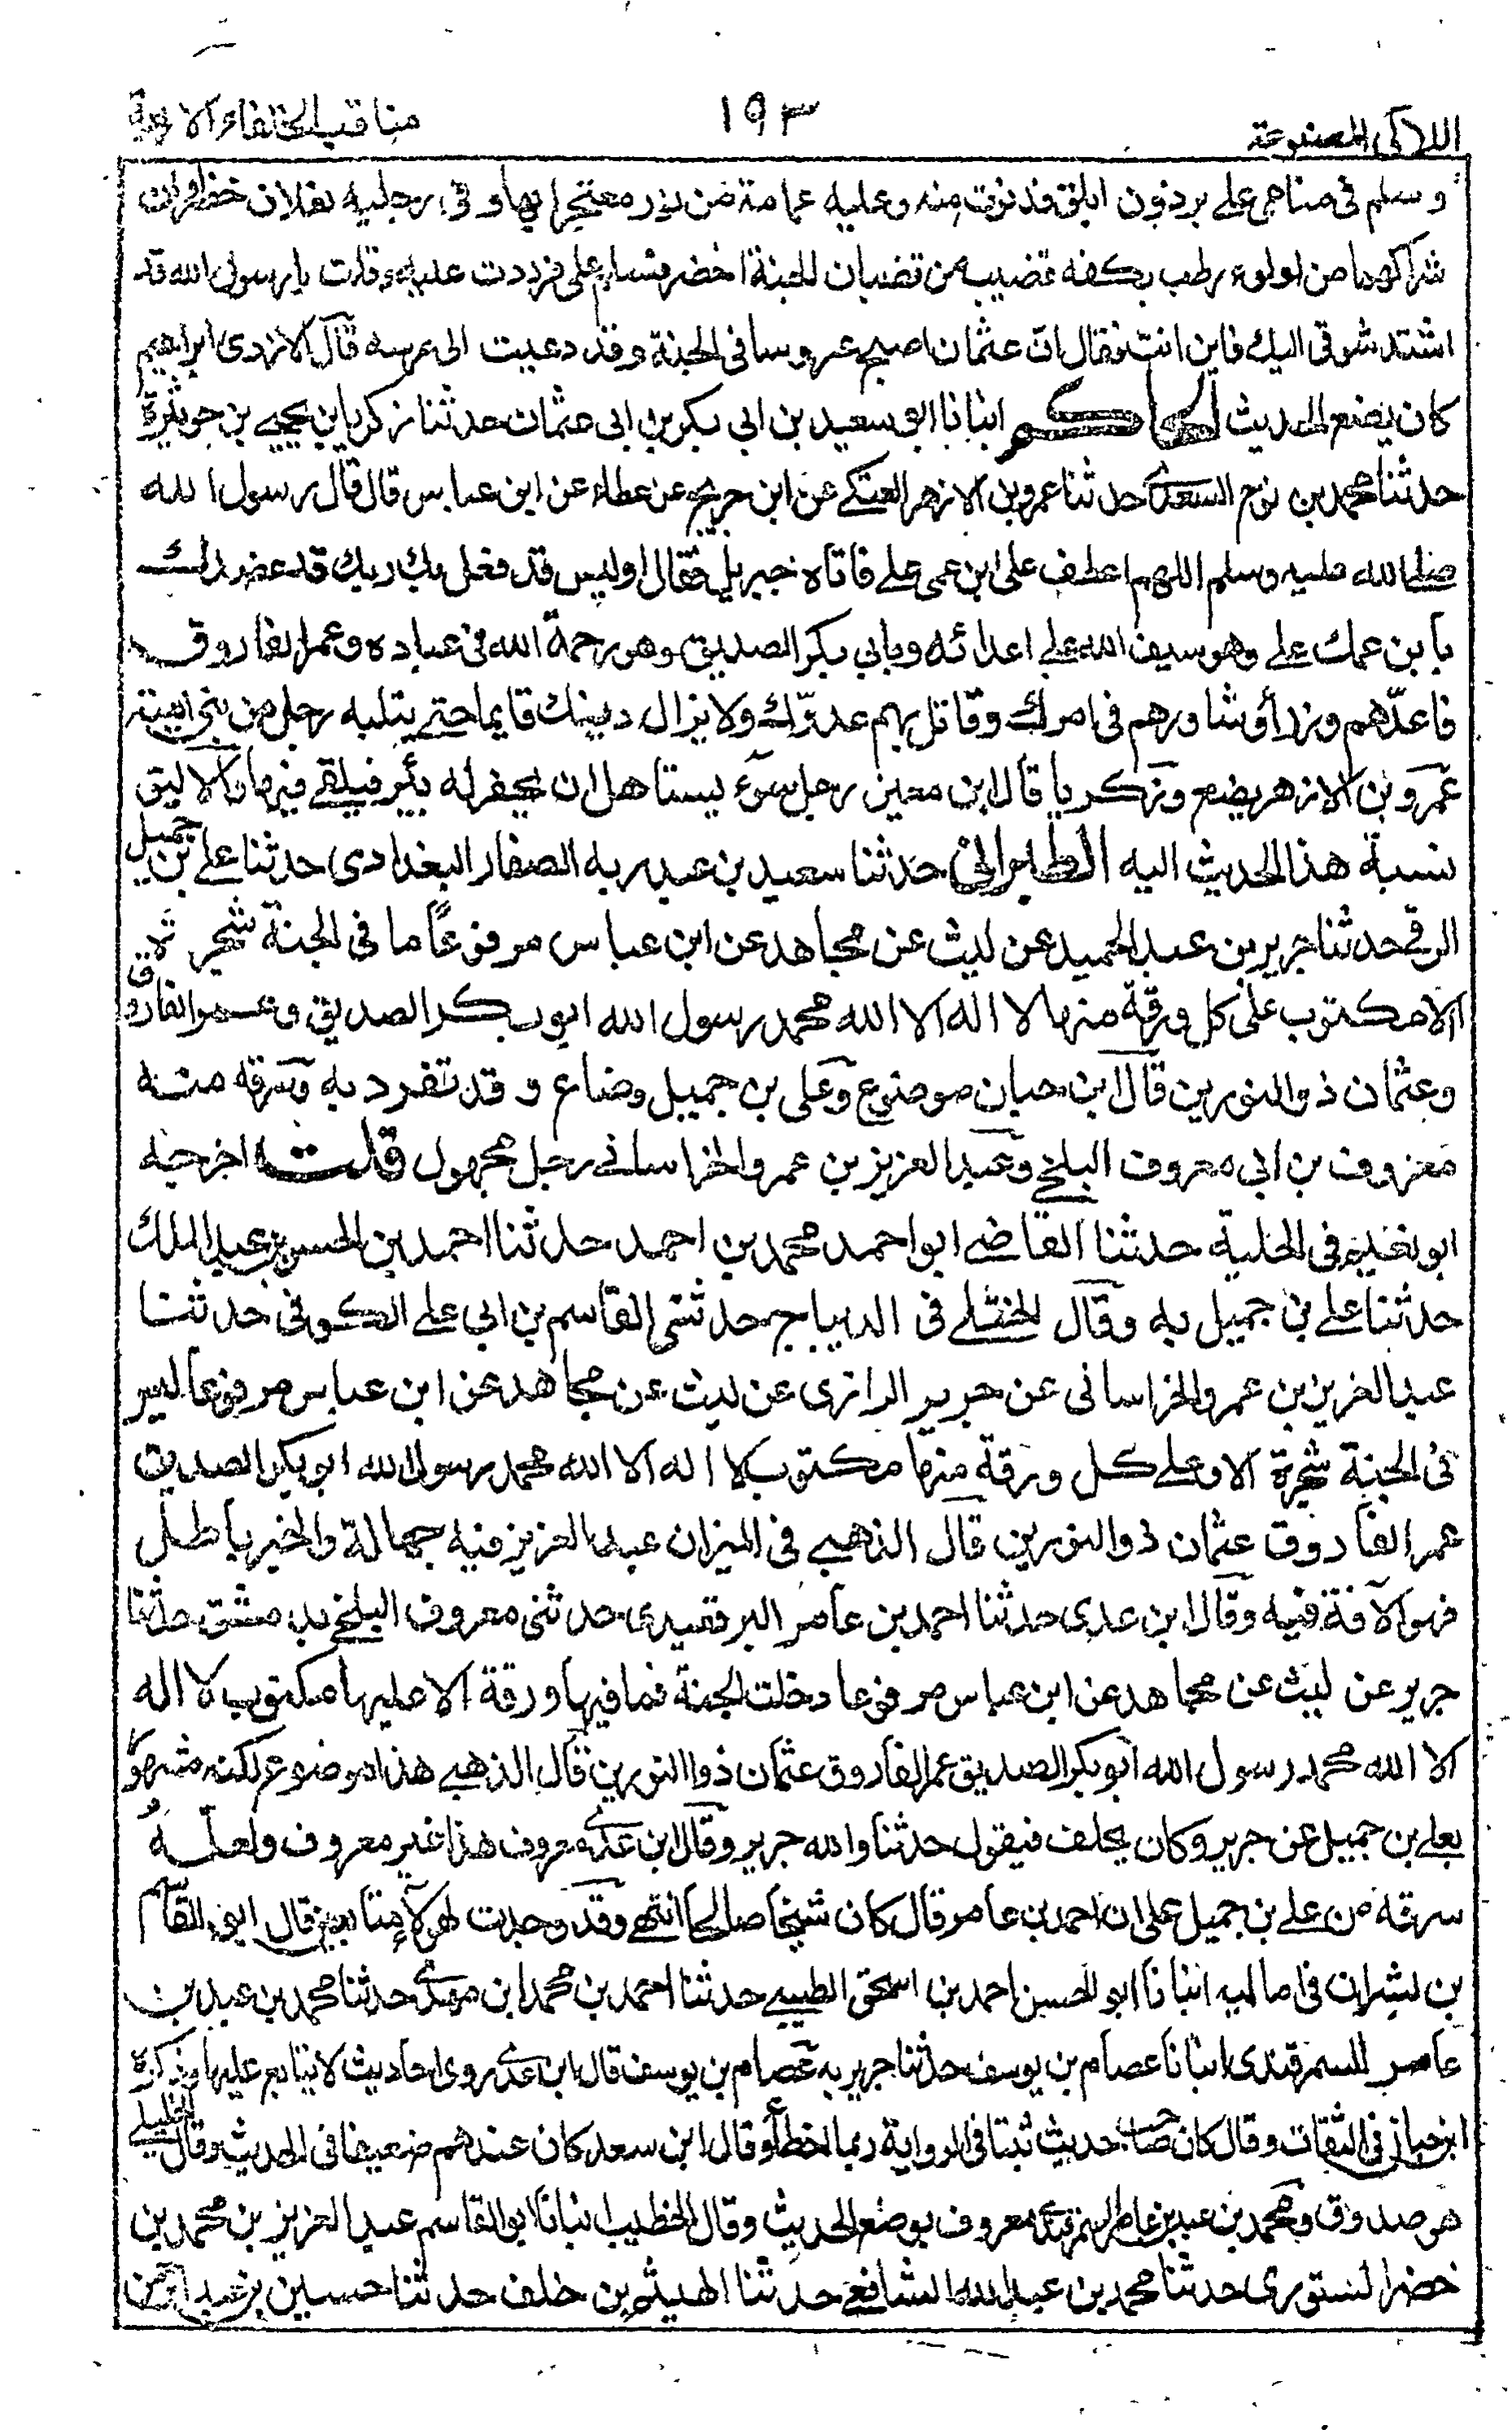 اللآلى المصنوعة ١٩٣ مناقب الخلفاء الاربعة
وسلم فى منامى على برذون ابلق فدنوت منه وعليه عمامة من نور معتجرا بها وفى رجليه نعلان خضراوان
شراكهما من لولوء رطب بكفه قضيب من قضبان الجنة اخضر فسلم على فرددت عليه وقلت يا رسول الله قد
اشتد شوقى اليك فاين انت فقال ان عثمان اصبح عروسا فى الجنة وقد دعيت الى عرسه قال الازدى ابراهيم
كان يضع الحديث الحاكم انبانا ابو سعيد بن ابى بكر بن ابى عثمان حدثنا زكريا بن يحيى بن حويثرة
حدثنا محمد بن نوح السعدى حدثنا عمرو بن الازهر العتكى عن ابن جريج عن عطاء عن ابن عباس قال قال رسول الله
صلى الله عليه وسلم اللهم اعطف على ابن عمى على فاتاه جبريل فقال اوليس قد فعل بك ربك قد عضدك
بابن عمك على وهو سيف الله على اعدائه وبابى بكر الصديق وهو رحمة الله فى عباده وعمر الفاروق
فاعدهم وزراء وشاورهم فى امرك وقاتل بهم عدوك ولا يزال دينك قايما حتى يثلبه رجل من بنى امية
عمرو بن الازهر يضع وزكريا قال ابن معين رجل سوء يستاهل ان يحفر له بئر فيلقى فيها الاليق
نسبة هذا الحديث اليه الطبرانى حدثنا سعيد بن عبد ربه الصفار البغدادى حدثنا على بن جميل
الرقى حدثنا جرير بن عبد الحميد عن ليث عن مجاهد عن ابن عباس مرفوعاً ما فى الجنة شجرة
الا مكتوب على كل ورقة منها لا اله الا الله محمد رسول الله ابو بكر الصديق وعمر الفاروق
وعثمان ذو النورين قال ابن حبان موضوع وعلى بن جميل وضاع وقد تفرد به وسرقه منه
معروف بن ابى معروف البلخى وعبد العزيز بن عمرو الخراسانى رجل مجهول قلت اخرجه
ابو نعيم فى الحلية حدثنا القاضى ابو احمد محمد بن احمد حدثنا احمد بن الحسن بن عبد الملك
حدثنا على بن جميل به وقال الختلى فى الديباج حدثنى القاسم بن ابى على الكوفى حدثنا
عبد العزيز بن عمرو الخراسانى عن جرير الرازى عن ليث عن مجاهد عن ابن عباس مرفوعا ليس
فى الجنة شجرة الا وعلى كل ورقة منها مكتوب لا اله الا الله محمد رسول الله ابو بكر الصديق
عمر الفاروق عثمان ذو النورين قال الذهبى فى الميزان عبد العزيز فيه جهالة والخبر باطل
فهو الآفة فيه وقال ابن عدى حدثنا احمد بن عامر البرقعيدى حدثنى معروف البلخى بدمشق حدثنا
جرير عن ليث عن مجاهد عن ابن عباس مرفوعا دخلت الجنة فما فيها ورقة الا عليها مكتوب لا اله
الا الله محمد رسول الله ابو بكر الصديق عمر الفاروق عثمان ذو النورين قال الذهبى هذا موضوع لكنه مشهور
بعلى بن جميل عن جرير وكان يحلف فيقول حدثنا والله جرير وقال ابن عدى معروف هذا غير معروف ولعله
سرقه من على بن جميل على ان احمد بن عامر قال كان شيخا صالحا انتهى وقد وجدت لهولاء متابعين قال ابو القاسم
بن بشران فى اماليه انبانا ابو الحسن احمد بن اسحق الطيبى حدثنا احمد بن محمد ابن مهدى حدثنا محمد بن عبد بن
عامر السمرقندى انبانا عصام بن يوسف حدثنا جرير به عصام بن يوسف قال ابن عدى روى احاديث لا يتابع عليها وذكره
ابن حبان فى الثقات وقال كان صاحب حديث ثبتا فى الرواية ربما اخطأ وقال ابن سعد كان عندهم ضعيفا فى الحديث وقال الخليلى
هو صدوق ومحمد بن عبد بن عامر السمرقندى معروف بوضع الحديث وقال الخطيب انبانا ابو القاسم عبد العزيز بن محمد بن
خضر الستورى حدثنا محمد بن عبد الله الشافعى حدثنا الهيثم بن خلف حدثنا حسين بن عبد الرحمن